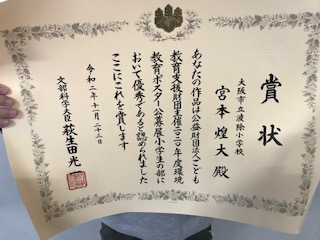 賞状
大阪市立波除小学校
宮本煌大殿
あなたの作品は公益財団法人こども
教育支援財団主催二〇二〇年度環境
教育ポスター公募展小学生の部に
おいて優秀であると認められました
ここにこれを賞します
令和二年十一月二十二日
文部科学大臣 萩生田光一